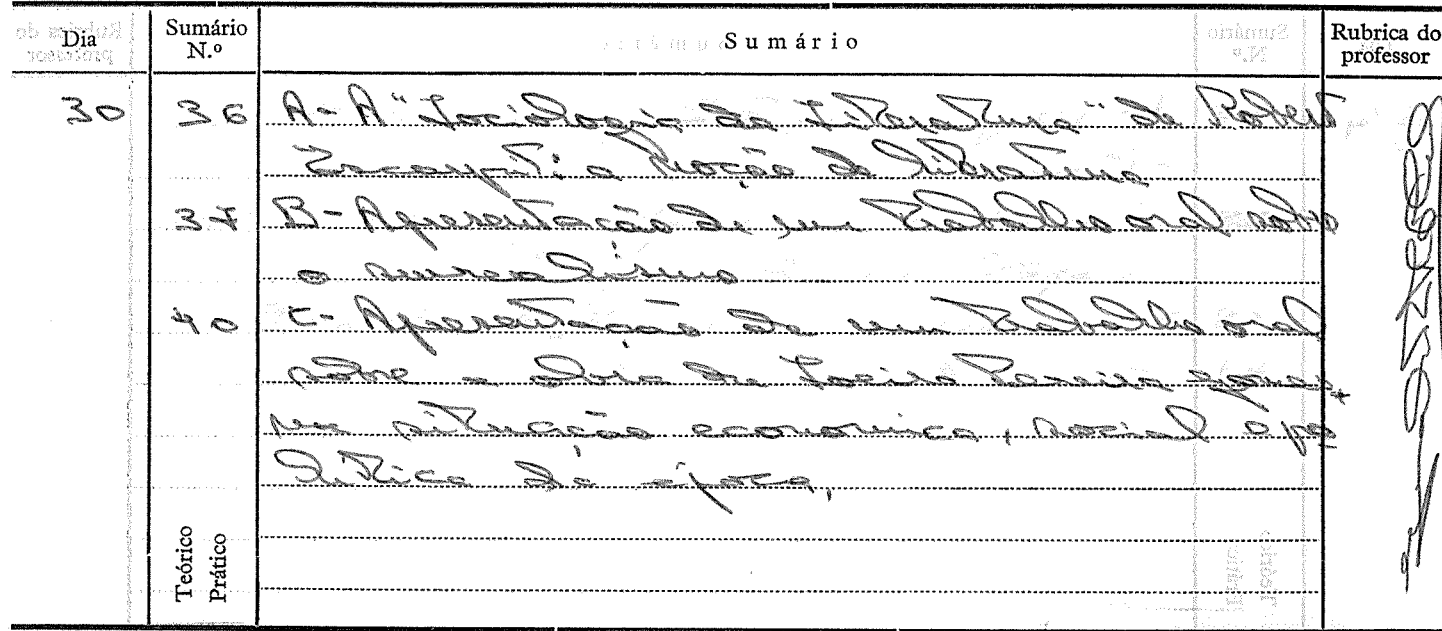 Dia Sumário N.º Sumário Rubrica do professor
30 36 A - A "Sociologia da Literatura" de Robert
Escarpit: a noção de literatura
37 B - Apresentação de um trabalho oral sobre
o surrealismo
40 C - Apresentação de um trabalho oral
sobre a obra de Soeiro Pereira Gomes
na situação economica, social e po
lítica da época.
Teórico
Prático